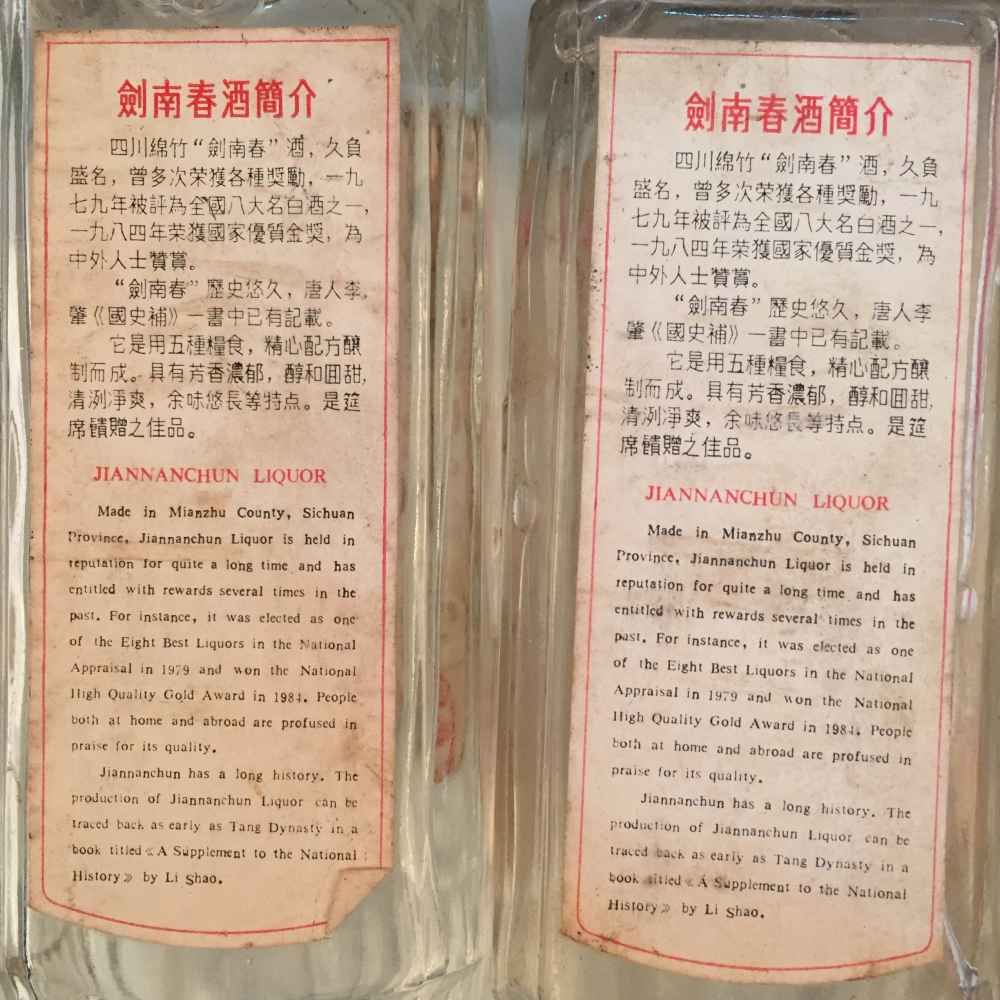 劍南春酒簡介
四川綿竹“劍南春”酒，久負
盛名，曾多次荣獲各種獎勵，一九
七九年被評為全國八大名白酒之一，
一九八四年荣獲國家優質金獎，為
中外人士贊賞。
“劍南春”歷史悠久，唐人李
肇《國史補》一書中已有記載。
它是用五種糧食，精心配方釀
制而成。具有芳香濃郁，醇和囬甜，
清洌凈爽，余味悠長等特点。是筵
席饋贈之佳品。
JIANNANCHUN LIQUOR
Made in Mianzhu County, Sichuan
Province, Jiannanchun Liquor is held in
reputation for quite a long time and has
entitled with rewards several times in the
past. For instance, it was elected as one
of the Eight Best Liquors in the National
Appraisal in 1979 and won the National
High Quality Gold Award in 1984. People
both at home and abroad are profused in
praise for its quality.
Jiannanchun has a long history. The
production of Jiannanchun Liquor can be
traced back as early as Tang Dynasty in a
book titled《A Supplement to the National
History》 by Li Shao.
劍南春酒簡介
四川綿竹“劍南春”酒，久負
盛名，曾多次荣獲各種獎勵，一九
七九年被評為全國八大名白酒之一，
一九八四年荣獲國家優質金獎，為
中外人士贊賞。
“劍南春”歷史悠久，唐人李
肇《國史補》一書中已有記載。
它是用五種糧食，精心配方釀
制而成。具有芳香濃郁，醇和囬甜，
清洌凈爽，余味悠長等特点。是筵
席饋贈之佳品。
JIANNANCHUN LIQUOR
Made in Mianzhu County, Sichuan
Province, Jiannanchun Liquor is held in
reputation for quite a long time and has
entitled with rewards several times in the
past. For instance, it was elected as one
of the Eight Best Liquors in the National
Appraisal in 1979 and won the National
High Quality Gold Award in 1984. People
both at home and abroad are profused in
praise for its quality.
Jiannanchun has a long history. The
production of Jiannanchun Liquor can be
traced back as early as Tang Dynasty in a
book titled《A Supplement to the National
History》 by Li Shao.